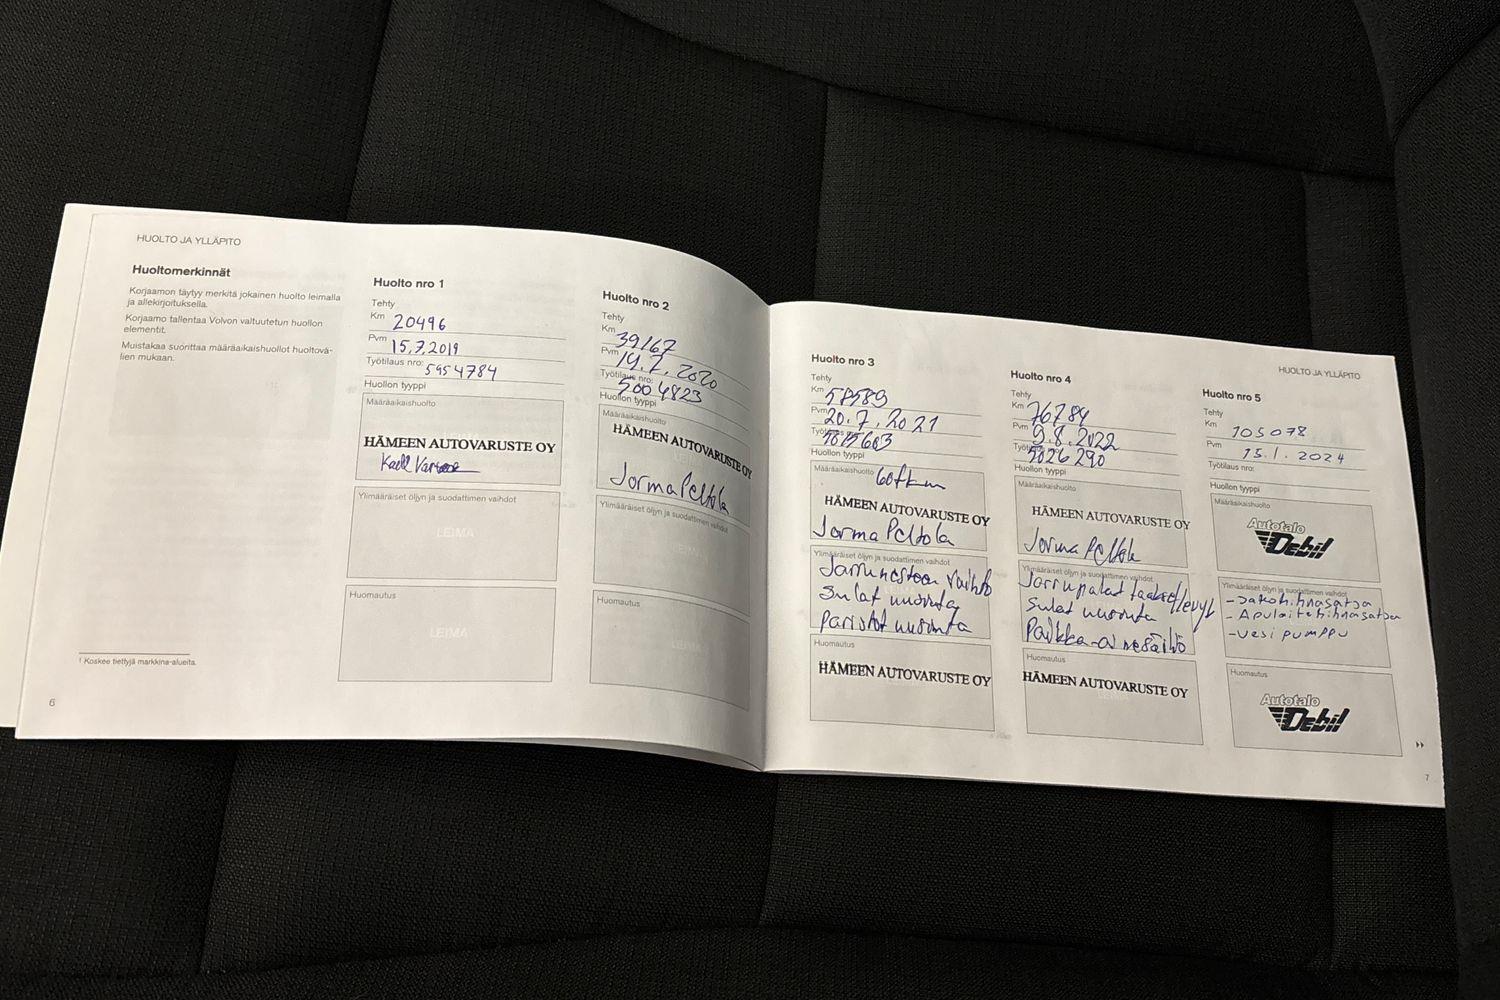 HUOLTO JA YLLÄPITO
Huoltomerkinnät
Korjaamon täytyy merkitä jokainen huolto leimalla
ja allekirjoituksella.
Korjaamo tallentaa Volvon valtuutetun huollon
elementit.
Muistakaa suorittaa määräaikaishuollot huoltovä-
lien mukaan.
1 Koskee tiettyjä markkina-alueita.
6
Huolto nro 1
Tehty
Km 20496
Pvm 15.7.2019
Työtilaus nro: 5954784
Huollon tyyppi
Määräaikaishuolto
HÄMEEN AUTOVARUSTE OY
Ylimääräiset öljyn ja suodattimen vaihdot
LEIMA
Huomautus
LEIMA
Huolto nro 2
Tehty
Km 39167
Pvm 14.7.2020
Työtilaus nro: 5004823
Huollon tyyppi
Määräaikaishuolto
HÄMEEN AUTOVARUSTE OY
Jorma Peltola
Ylimääräiset öljyn ja suodattimen vaihdot
Huomautus
Huolto nro 3
Tehty
Km 58589
Pvm 20.7.2021
Huollon tyyppi
Määräaikaishuolto 60tkm
HÄMEEN AUTOVARUSTE OY
Jorma Peltola
Ylimääräiset öljyn ja suodattimen vaihdot
Jarrunesteen vaihto
Sulat uusinta
Paristot uusinta
Huomautus
HÄMEEN AUTOVARUSTE OY
Huolto nro 4
Tehty
Km 76784
Pvm 9.8.2022
5026290
Huollon tyyppi
Määräaikaishuolto
HÄMEEN AUTOVARUSTE OY
Jorma Peltola
Ylimääräiset öljyn ja suodattimen vaihdot
Jarrupalat taakse/levyt
Sulat uusinta
Paikka-ainesäiliö
Huomautus
HÄMEEN AUTOVARUSTE OY
HUOLTO JA YLLÄPITO
Huolto nro 5
Tehty
Km 105078
Pvm 15.1.2024
Työtilaus nro:
Huollon tyyppi
Määräaikaishuolto
Autotalo
Debil
Ylimääräiset öljyn ja suodattimen vaihdot
- Jakohihnasatsa
- Apulaitehihnasatsa
- Vesi pumppu
Huomautus
Autotalo
Debil
7